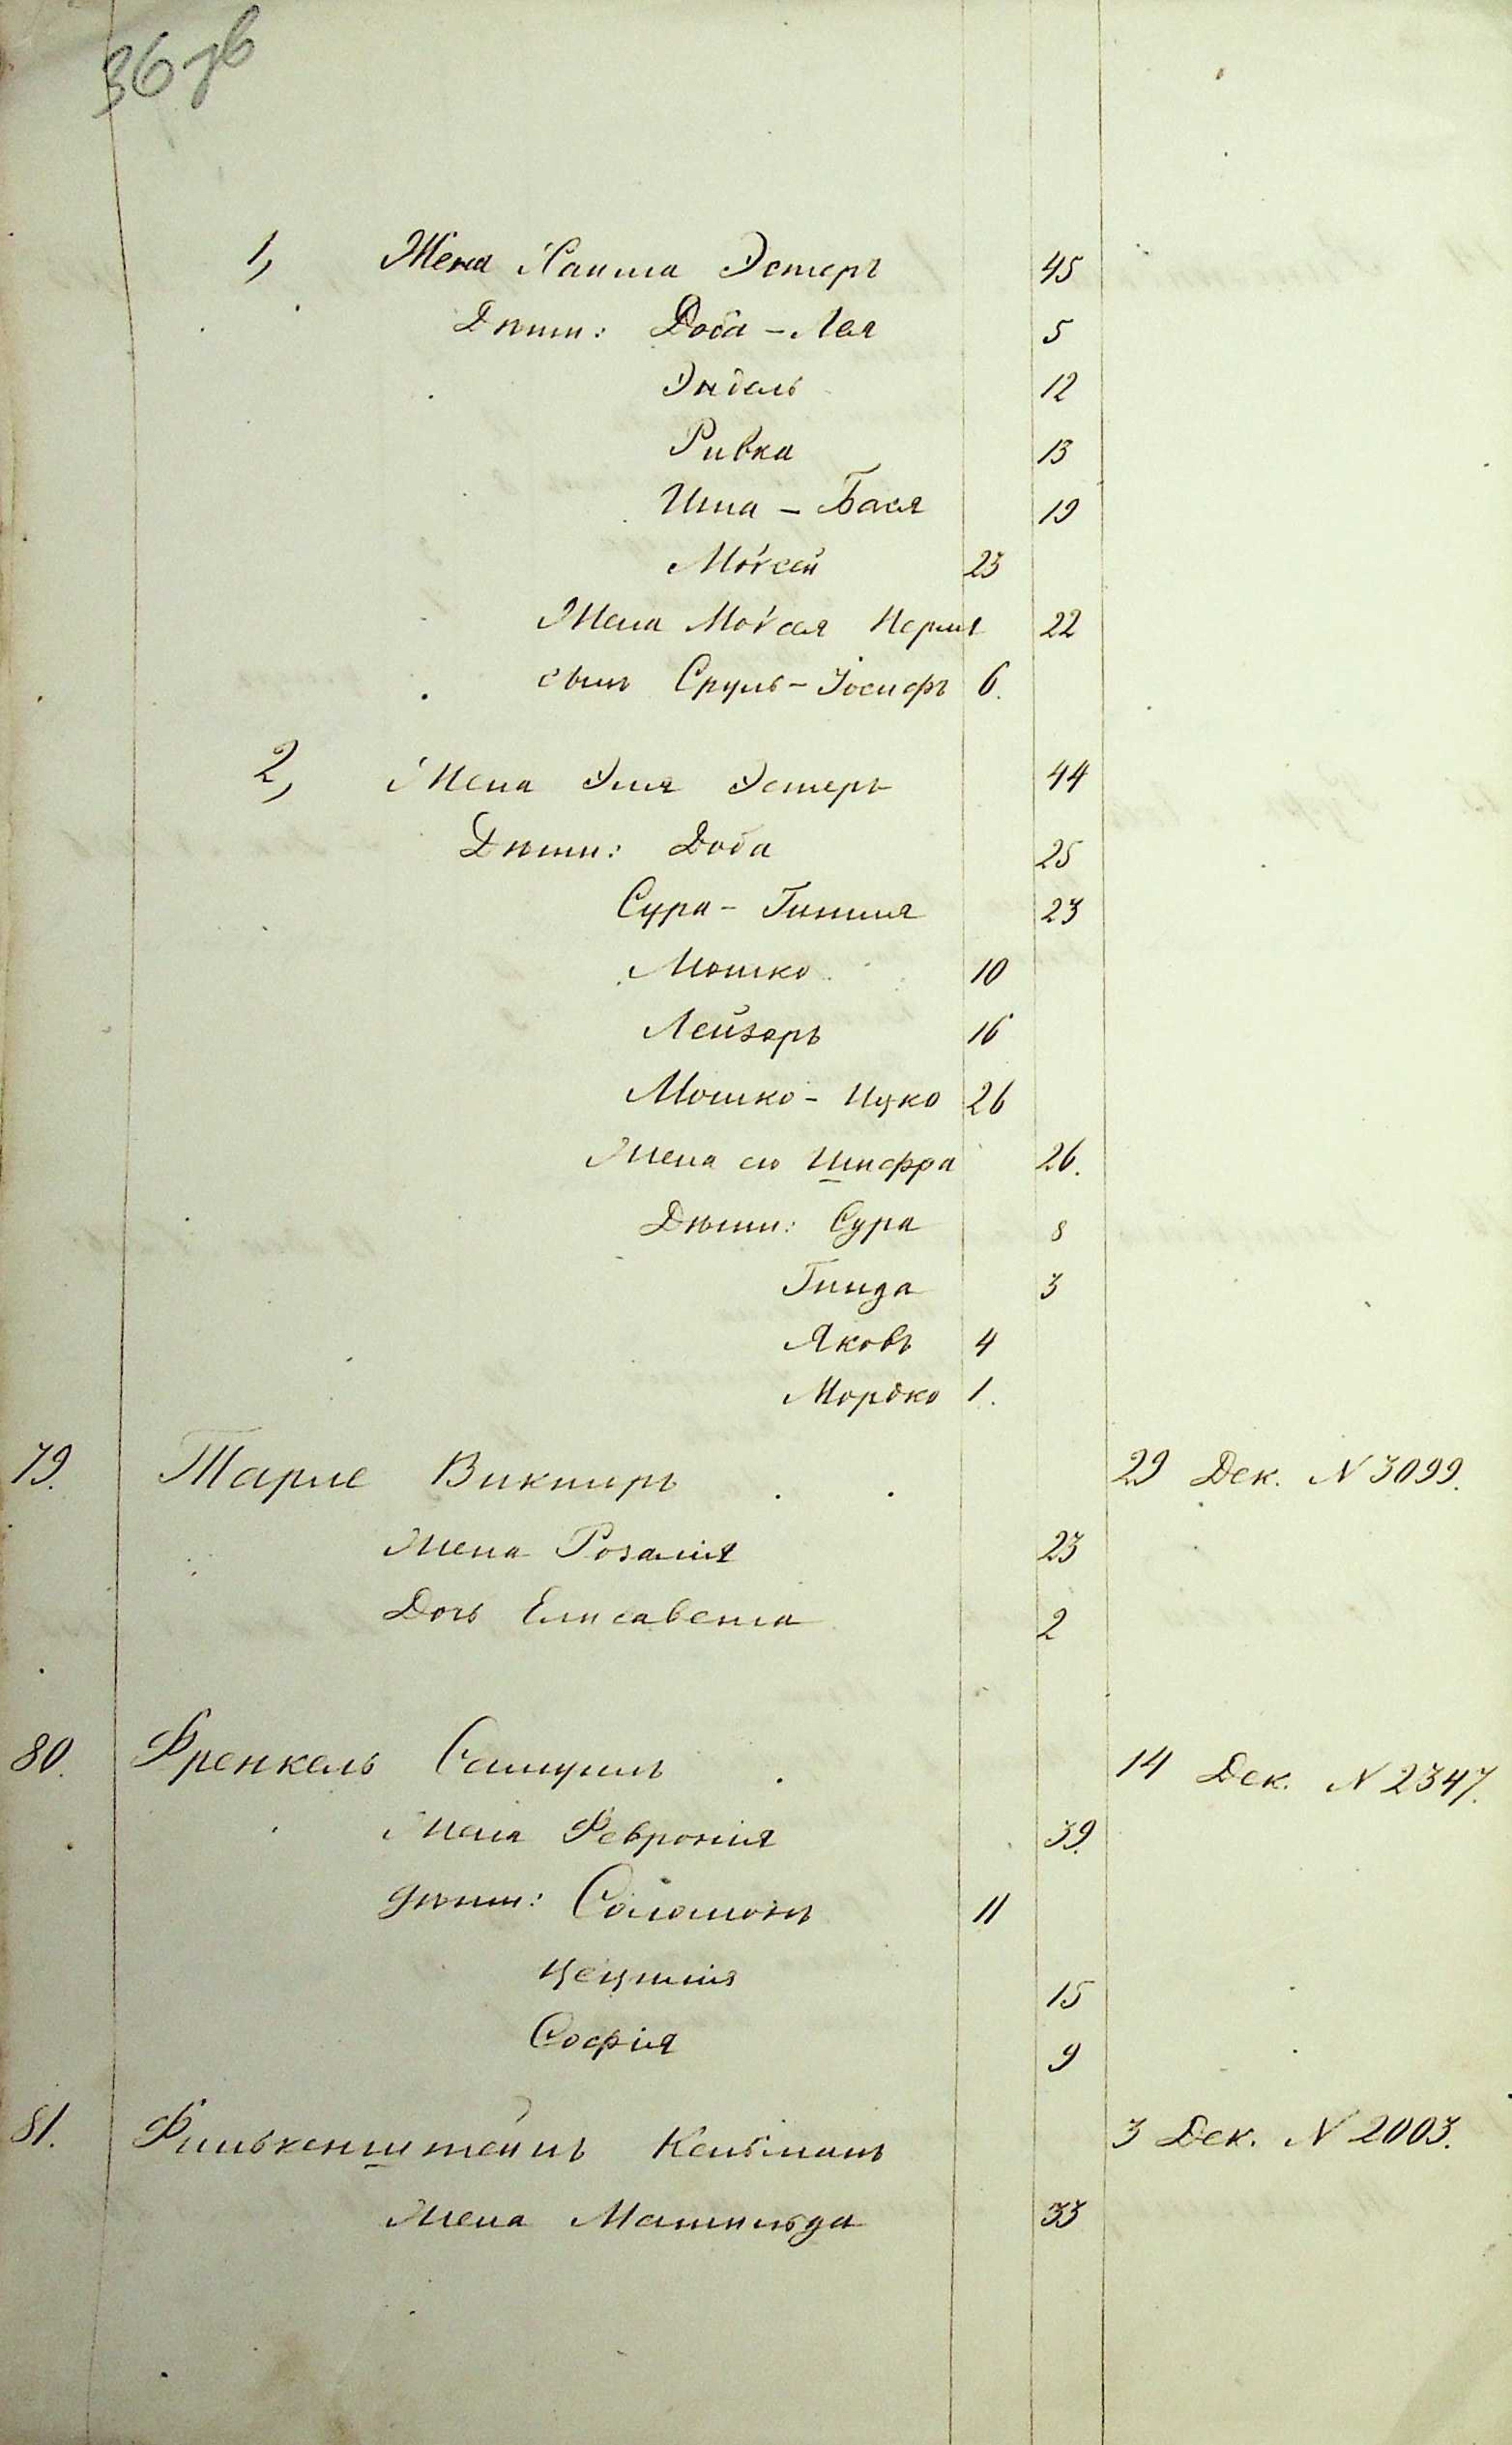 36 зв
1, Жена Хаима Эстеръ 45
Дѣти: Доба - Лея 5
Эндель 12
Ривка 13
Ита - Бася 19
Мойсей 23
Жена Мойсея Перля 22
сынъ Сруль - Іосифъ 6.
2, Жена Эля Эстеръ 44
Дѣти: Доба 25
Сура - Гитля 23
Мошко 10
Лейзеръ 16
Мошко - Ицко 26
Жена его Шифра 26.
Дѣти: Сура 8
Гинда 3
Яковъ 4
Мордко 1.
79. Тарле Викторъ 29 Дек. N 3099.
Жена Розалія 23
Дочь Елисавета 2
80. Френкель Самуилъ 14 Дек. N 2347.
Жена Февронія 39.
дѣти: Соломонъ 11
Цецилія 15
Софія 9
81. Финькенштейнъ Кельманъ 3 Дек. N 2003.
Жена Матильда 33